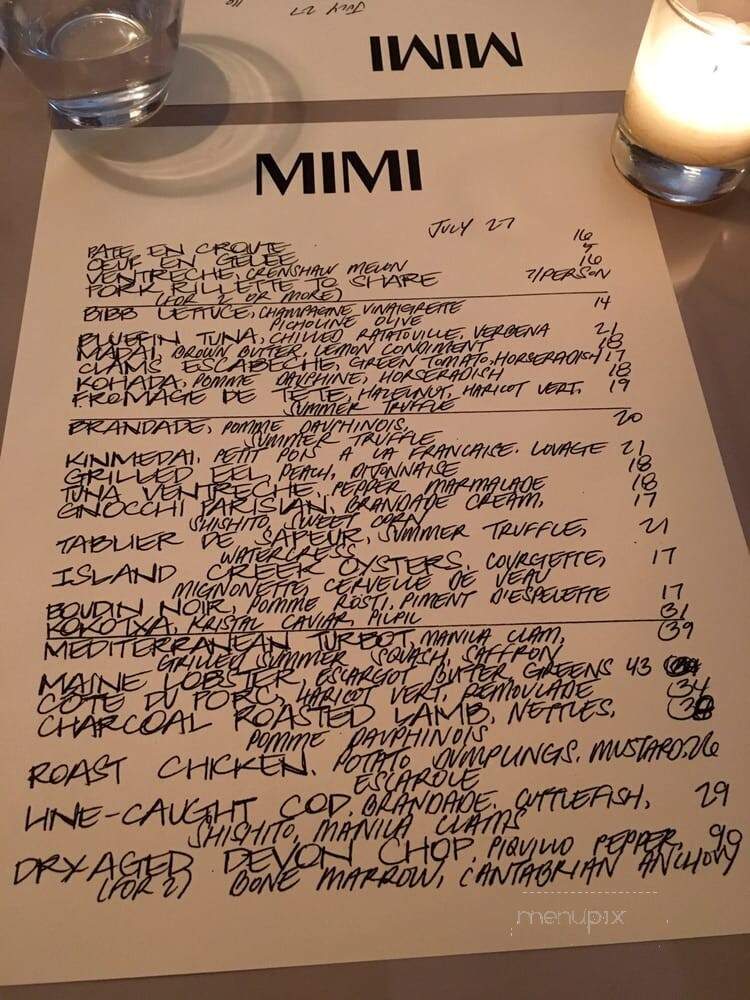 JULY 27
MIMI
MIMI
JULY 27
PATE EN CROUTE 16
OEUF EN GELEE 9
VENTRECHE, CRENSHAW MELON 16
PORK RILLETTE TO SHARE 7/PERSON
(FOR 2 OR MORE)
BIBB LETTUCE, CHAMPAGNE VINAIGRETTE 14
PICHOLINE OLIVE
BLUEFIN TUNA, CHILLED RATATOUILLE, VERBENA 21
MADAI, BROWN BUTTER, LEMON CONDIMENT 18
CLAMS ESCABECHE, GREEN TOMATO, HORSERADISH 17
KOHADA, POMME DAUPHINE, HORSERADISH 18
FROMAGE DE TETE, HAZELNUT, HARICOT VERT, 19
SUMMER TRUFFLE
BRANDADE, POMME DAUPHINOIS, 20
SUMMER TRUFFLE
KINMEDAI, PETIT POIS A LA FRANCAISE. LOVAGE 21
GRILLED EEL PEACH, DIJONNAISE 18
TUNA VENTRECHE, PEPPER MARMALADE 18
GNOCCHI PARISIAN, BRANDADE CREAM, 17
SHISHITO, SWEET CORN
TABLIER DE SAPEUR, SUMMER TRUFFLE, 21
WATERCRESS
ISLAND CREEK OYSTERS, COURGETTE, 17
MIGNONETTE, CERVELLE DE VEAU
BOUDIN NOIR, POMME RÖSTI, PIMENT D'ESPELETTE 17
KOKOTXA, KRISTAL CAVIAR, PILPIL 31
MEDITERRANEAN TURBOT, MANILA CLAM, 39
GRILLED SUMMER SQUASH, SAFFRON
MAINE LOBSTER, ESCARGOT BUTTER, GREENS 43
COTE DU PORC, HARICOT VERT, REMOULADE 34
CHARCOAL ROASTED LAMB, NETTLES,
POMME DAUPHINOIS
ROAST CHICKEN, POTATO DUMPLINGS, MUSTARD, 26
ESCAROLE
LINE-CAUGHT COD, BRANDADE, CUTTLEFISH, 29
SHISHITO, MANILA CLAMS
DRY AGED DEVON CHOP, PIQUILLO PEPPER, 90
(FOR 2) BONE MARROW, CANTABRIAN ANCHOVY
menupix